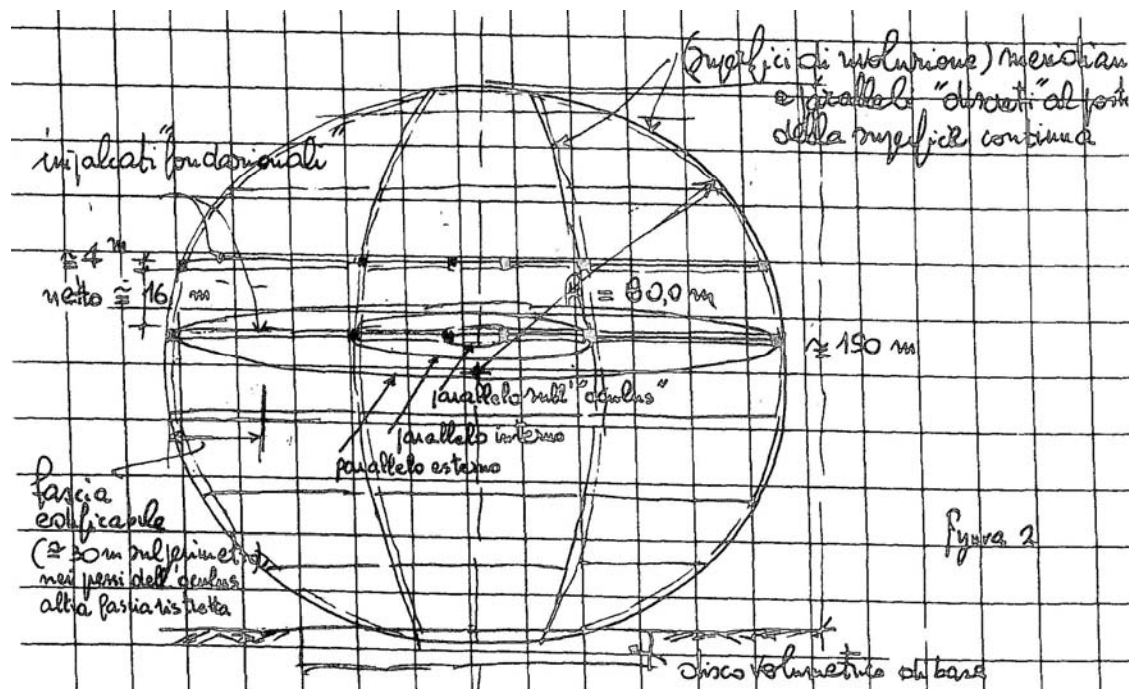 (superfici di rivoluzione) meridian
e paralleli "discreti" al posto
della superficie continua
impalcati "fondazionali"
≅ 4 m
netto ≅ 16 m
R = 80,0 m
≅ 150 m
parallelo sull'"oculus"
parallelo interno
parallelo esterno
fascia
edificabile
(≅ 30 m sul perimetro)
nei pressi dell'oculus
altra fascia ristretta
Figura 2
disco volumetrico di base